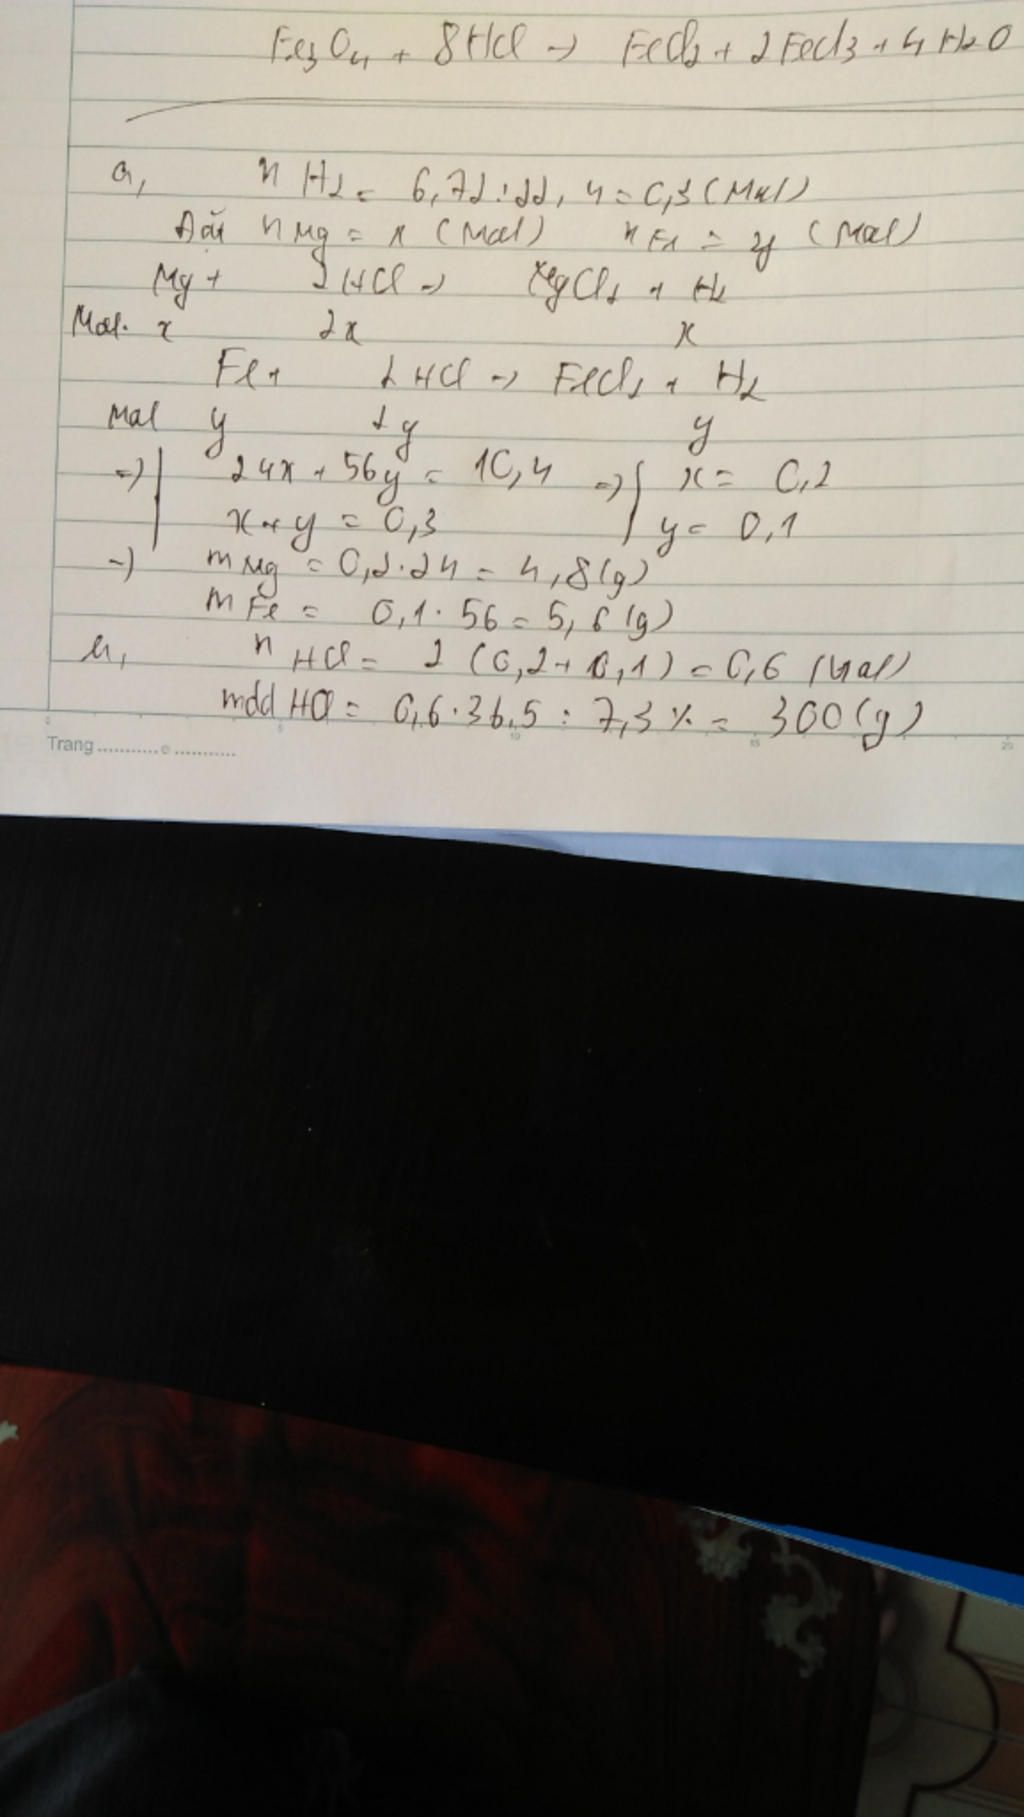 Fe3O4 + 8HCl -> FeCl2 + 2FeCl3 + 4H2O
a, n H2 = 6,72 : 22,4 = 0,3 (mol)
Đặt n Mg = x (mol) n Fe = y (mol)
Mg + 2HCl -> MgCl2 + H2
Mol x 2x x
Fe + 2HCl -> FeCl2 + H2
mol y 2y y
=> 24x + 56y = 10,4 => x = 0,2
x + y = 0,3 y = 0,1
-> m Mg = 0,2.24 = 4,8 (g)
m Fe = 0,1.56 = 5,6 (g)
b, n HCl = 2 (0,2 + 0,1) = 0,6 (mol)
mdd HCl = 0,6.36,5 : 7,3% = 300 (g)
5 10 15 20
Trang